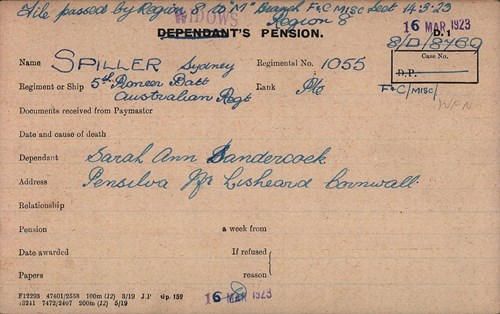 File passed by Region 8 to "M" Branch F&C Misc Sect 14-3-23
WIDOWS
Region 8
16 MAR 1923
DEPENDANT'S PENSION.
D.1
8/D/8769
Case No.
D.P.
F&C/MISC/
WFN
Name SPILLER Sydney Regimental No. 1055
Regiment or Ship 5th Pioneer Batt Rank Pte
Australian Regt
Documents received from Paymaster
Date and cause of death
Dependant Sarah Ann Sandercock
Address Pensilva Nr Lisheard Cornwall.
Relationship
Pension a week from
Date awarded If refused
Papers reason
16 MAR 1923
F12293 47401/2558 100m (12) 3/19 J.P Gp. 159
13241 7472/2407 200m (12) 5/19